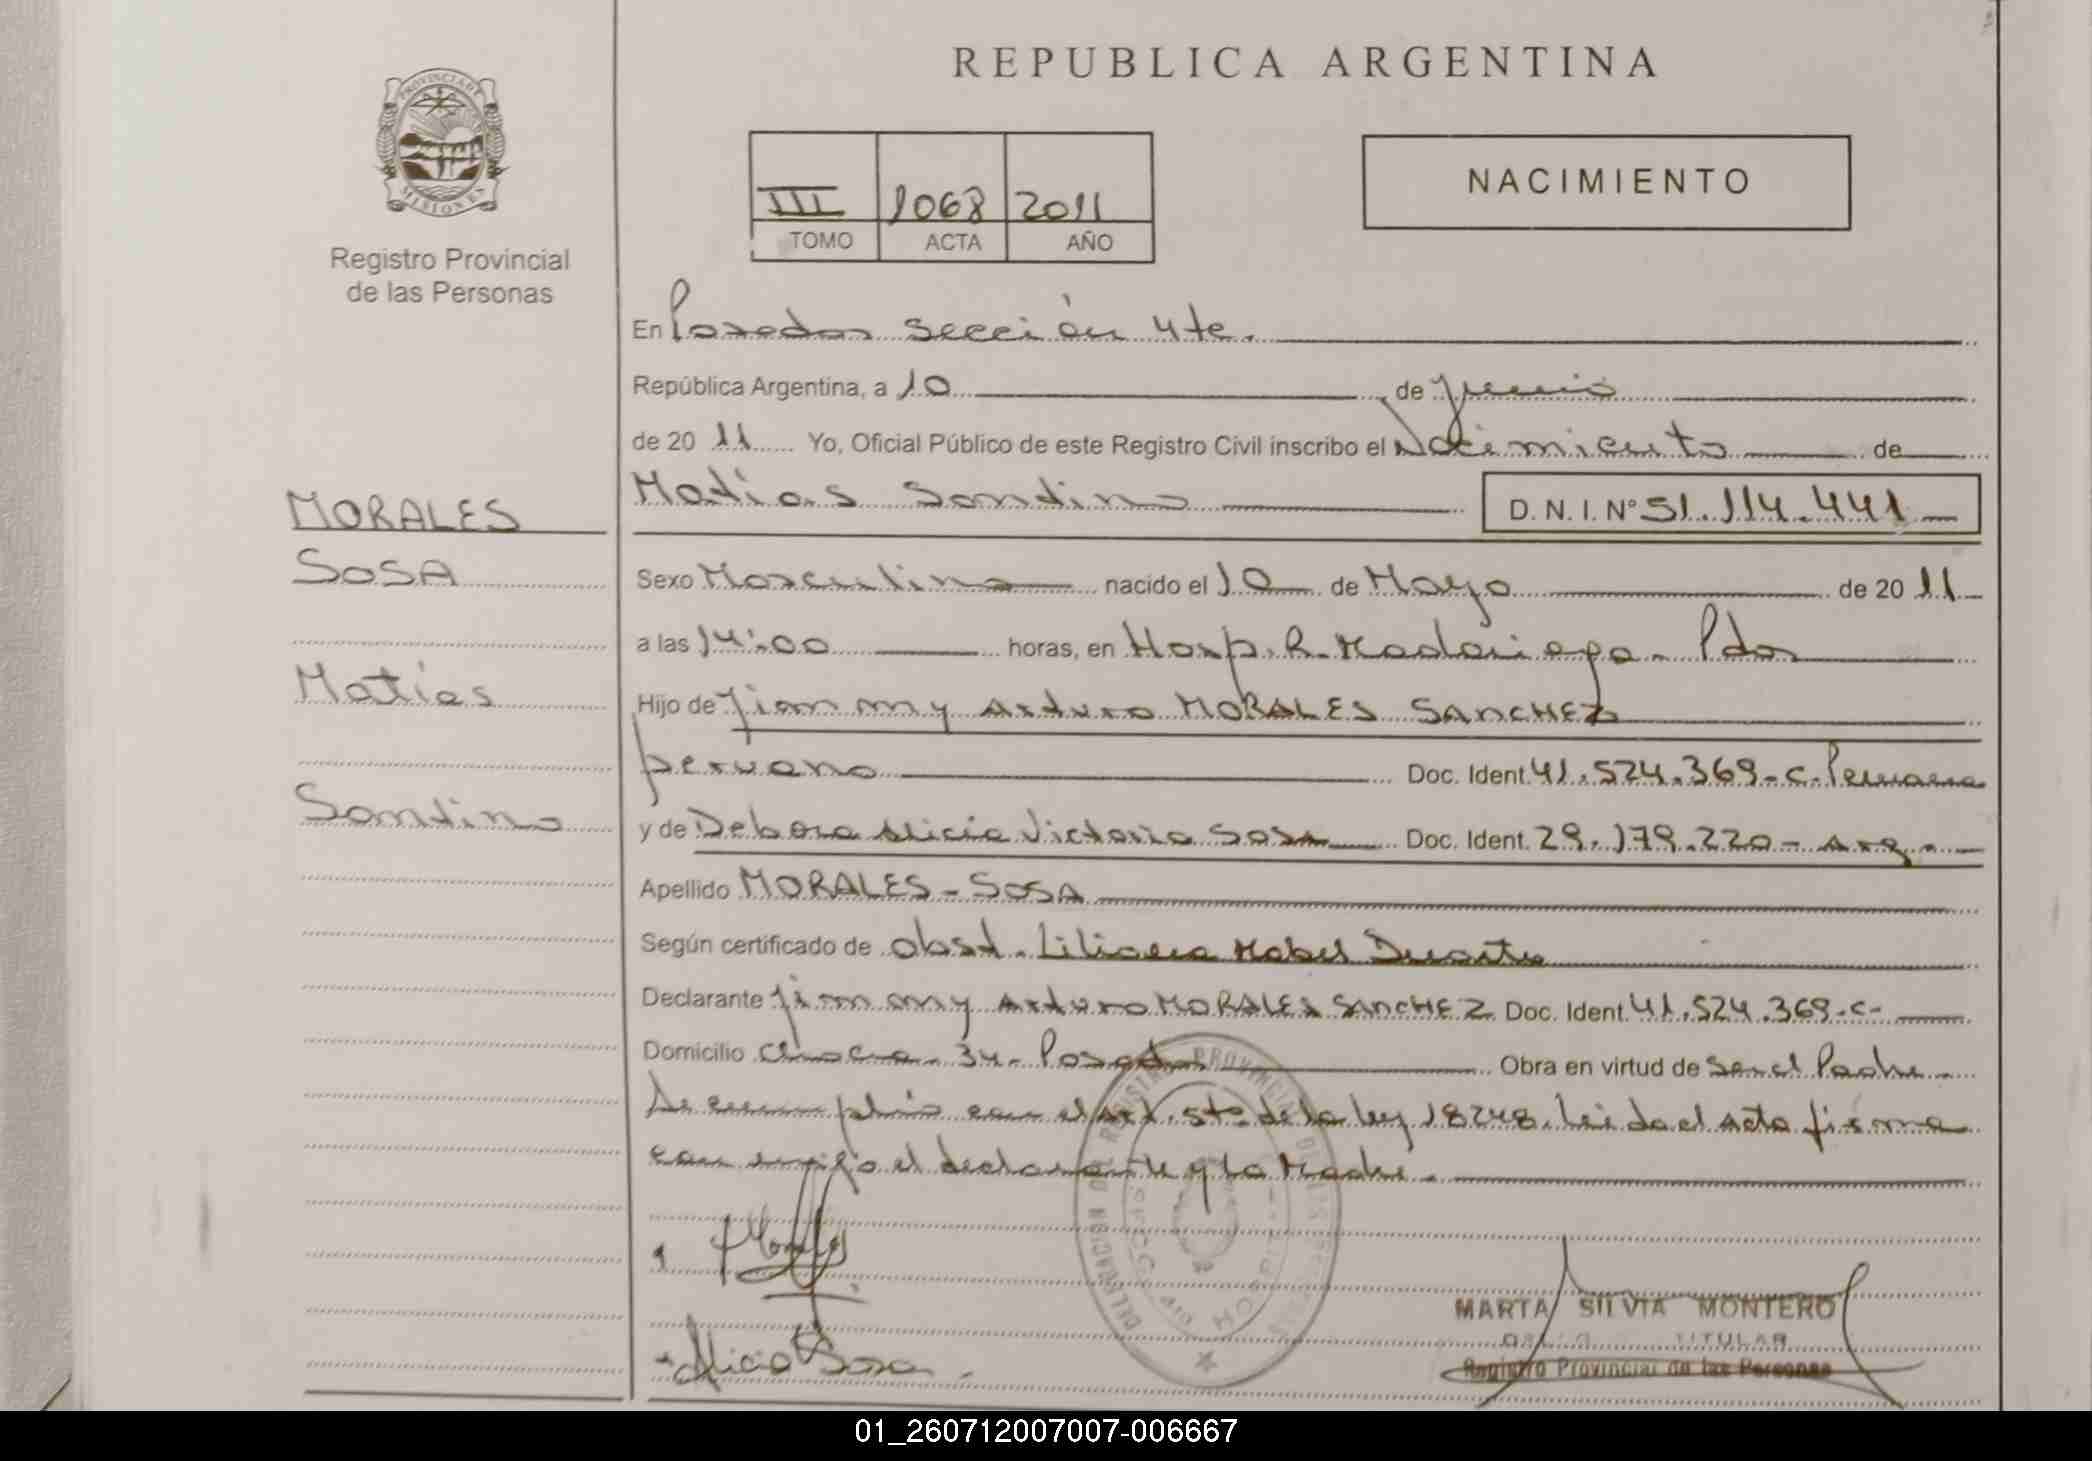 REPUBLICA ARGENTINA
PROVINCIA DE
MISIONES
Registro Provincial
de las Personas
NACIMIENTO
III 1068 2011
TOMO ACTA AÑO
En Posadas Sección 4ta.
República Argentina, a 10 de Junio
de 2011 Yo, Oficial Público de este Registro Civil inscribo el Nacimiento de
Matías Santino D. N. I. Nº 51.114.441
MORALES
SOSA
Matías
Santino
Sexo Masculino nacido el 10 de Mayo de 2011
a las 14:00 horas, en Hosp. R. Madariaga - Pdas
Hijo de Jimmy Arturo MORALES SANCHEZ
peruano Doc. Ident. 41.524.369 - C. Peruana
y de Debora Alicia Victoria Sosa Doc. Ident. 29.179.220 - Arg. -
Apellido MORALES - SOSA
Según certificado de obst. Liliana Mabel Duarte
Declarante Jimmy Arturo MORALES SANCHEZ Doc. Ident. 41.524.369 - C -
Domicilio Chacra - 34 - Posadas Obra en virtud de Ser el Padre -
Se cumplió con el Art. 5to de la ley 18248. Leída el Acta firma
conmigo el declarante y la Madre. -
Alicia Sosa
MARTA SILVIA MONTERO
TITULAR
Registro Provincial de las Personas
01_260712007007-006667